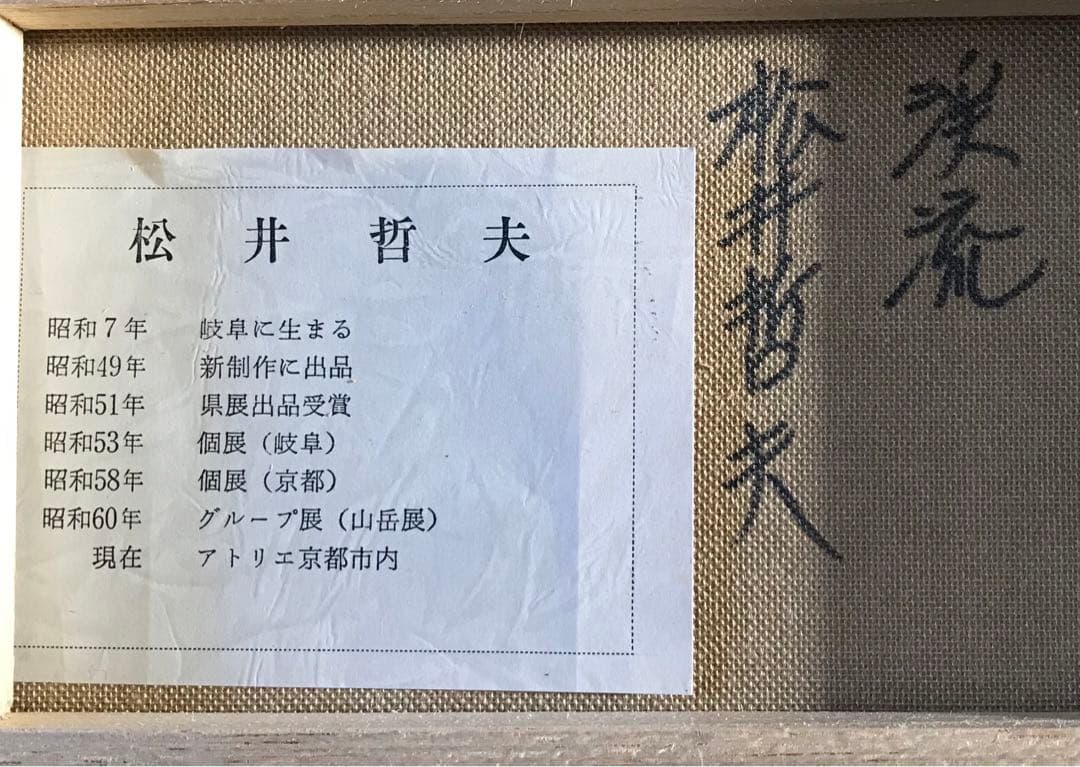 渓流
松井哲夫
松井哲夫
昭和7年 岐阜に生まる
昭和49年 新制作に出品
昭和51年 県展出品受賞
昭和53年 個展（岐阜）
昭和58年 個展（京都）
昭和60年 グループ展（山岳展）
現在 アトリエ京都市内